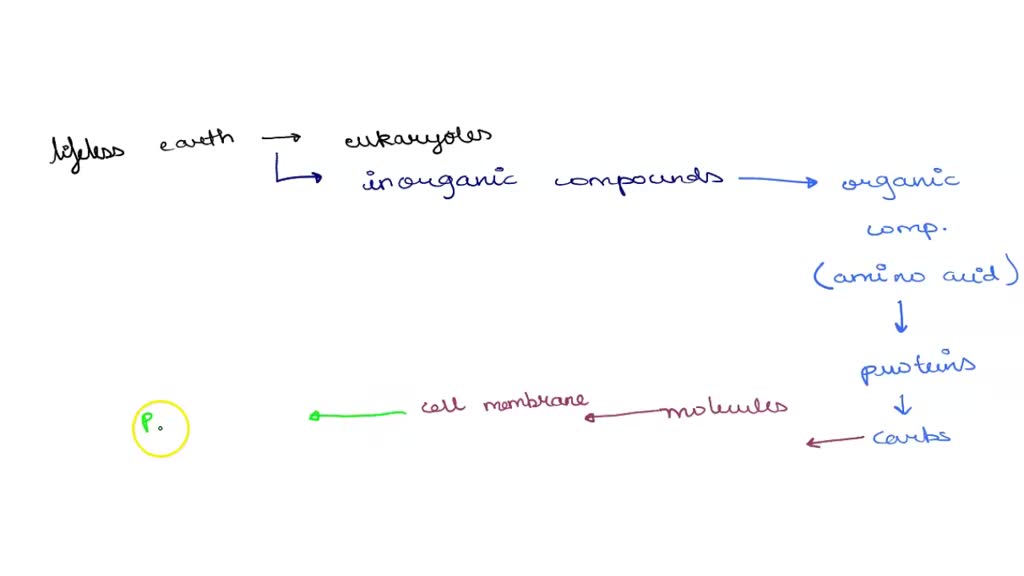 lifeless earth → eukaryotes
inorganic compounds → organic
comp.
(amino acid)
↓
proteins
↓
carbs
← molecules
← cell membrane
← P.